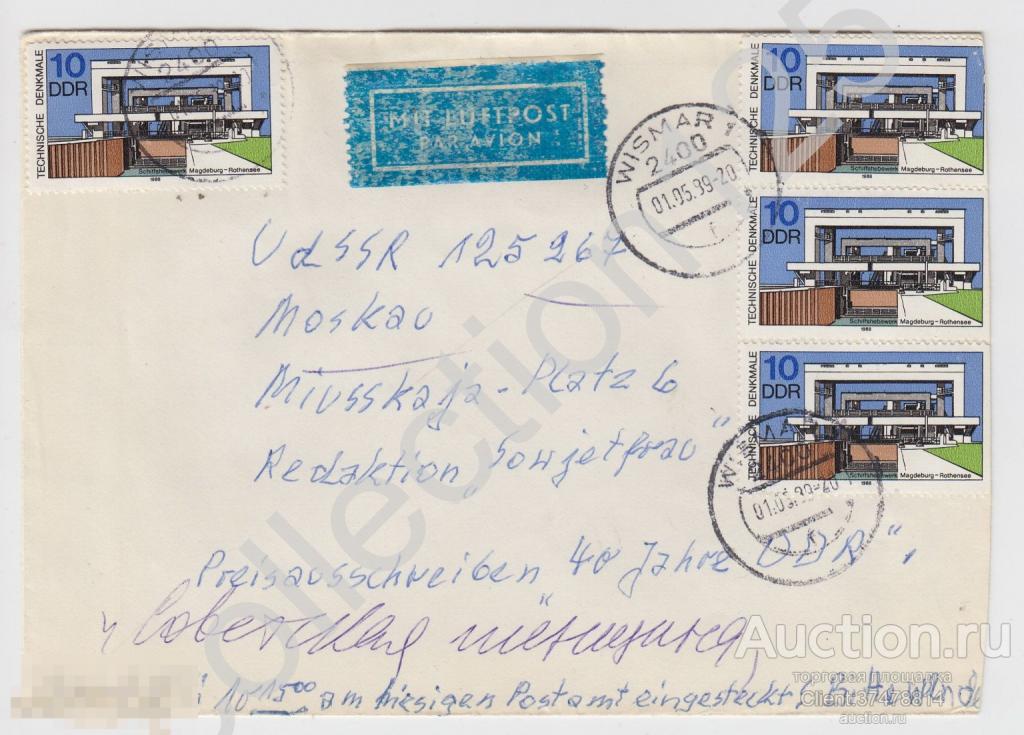 10
DDR
TECHNISCHE DENKMALE
Schiffshebewerk Magdeburg-Rothensee
1988
2400
MIT LUFTPOST
PAR AVION
WISMAR 1
2400
01.05.89-20
r
10
DDR
TECHNISCHE DENKMALE
Schiffshebewerk Magdeburg-Rothensee
1988
10
DDR
TECHNISCHE DENKMALE
Schiffshebewerk Magdeburg-Rothensee
1988
10
DDR
TECHNISCHE DENKMALE
Schiffshebewerk Magdeburg-Rothensee
1988
2400
01.05.89-20
UdSSR 125267
Moskau
Miusskaja-Platz 6
Redaktion „Sowjetfrau"
Preisausschreiben 40 Jahre DDR",
"Советская женщина"
10 15⁰⁰ am hiesigen Postamt eingesteckt,
collection
Auction.ru
торговая площадка
Client:37478814
auction.ru